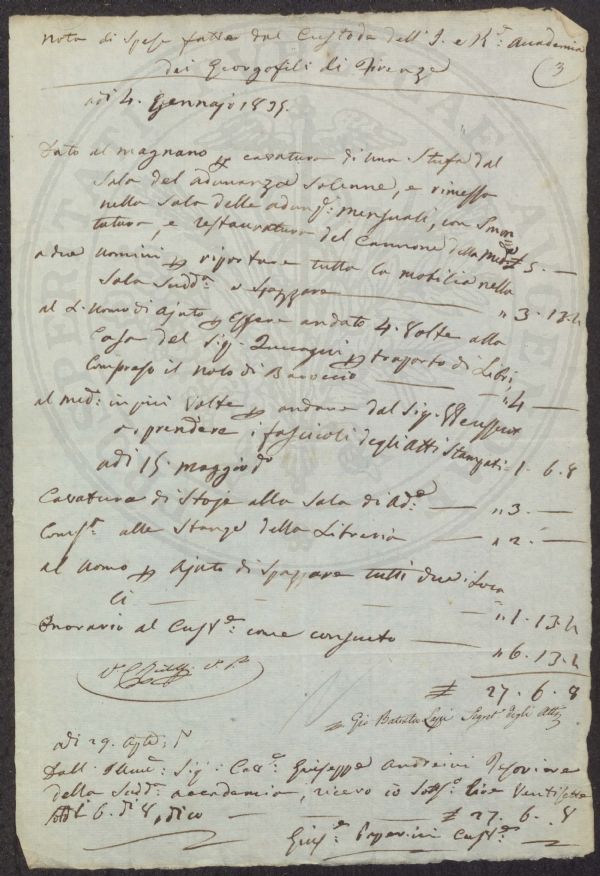 Nota di Spese fatte dal Custode dell'I. e R.e Accademia
dei Georgofili di Firenze
3
adi 4. Gennajo 1835.
Dato al magnano p cavatura di una Stufa dal
Sala del adunanza Solenne, e rimessa
nella Sala delle adunze: mensuali, con Smon
tatura, e restauratura del Cannone della Med.a £ 5. —
a due Uomini p riportare tutta la mobilia nella
Sala Sudd.a e Spazzare — " 3. 13. 4
al d. Uomo di Ajuto p Essere andato 4. Volte alla
Casa del Sig. Zuccagni p trasporto di Libri,
Compreso il nolo di Baroccio — " 4 —
al med: in più Volte p andare dal Sig.
a prendere i fascicoli degli Atti Stampati - 1. 6. 8
adi 15. maggio do
Cavatura di Stoje alla Sala di Ad.e — " 3. —
Comp.a alle Stanze della Libreria — " 2. —
al Uomo p Ajuto di Spazzare tutti due i Loca
li — " 1. 13. 4
Onorario al Cust.e come consueto — " 6. 13. 4
£ 27. 6. 8
Gio Batista Segret. degli Atti
adi 29. do
Dall' Illmo: Sig: Cav.e Giuseppe Andreini Tesoriere
della Sudd.a accademia, ricevo io Sott.o lire Ventisette
Soldi 6. di 8, dico — £ 27. 6. 8
Gius.e Cust.e